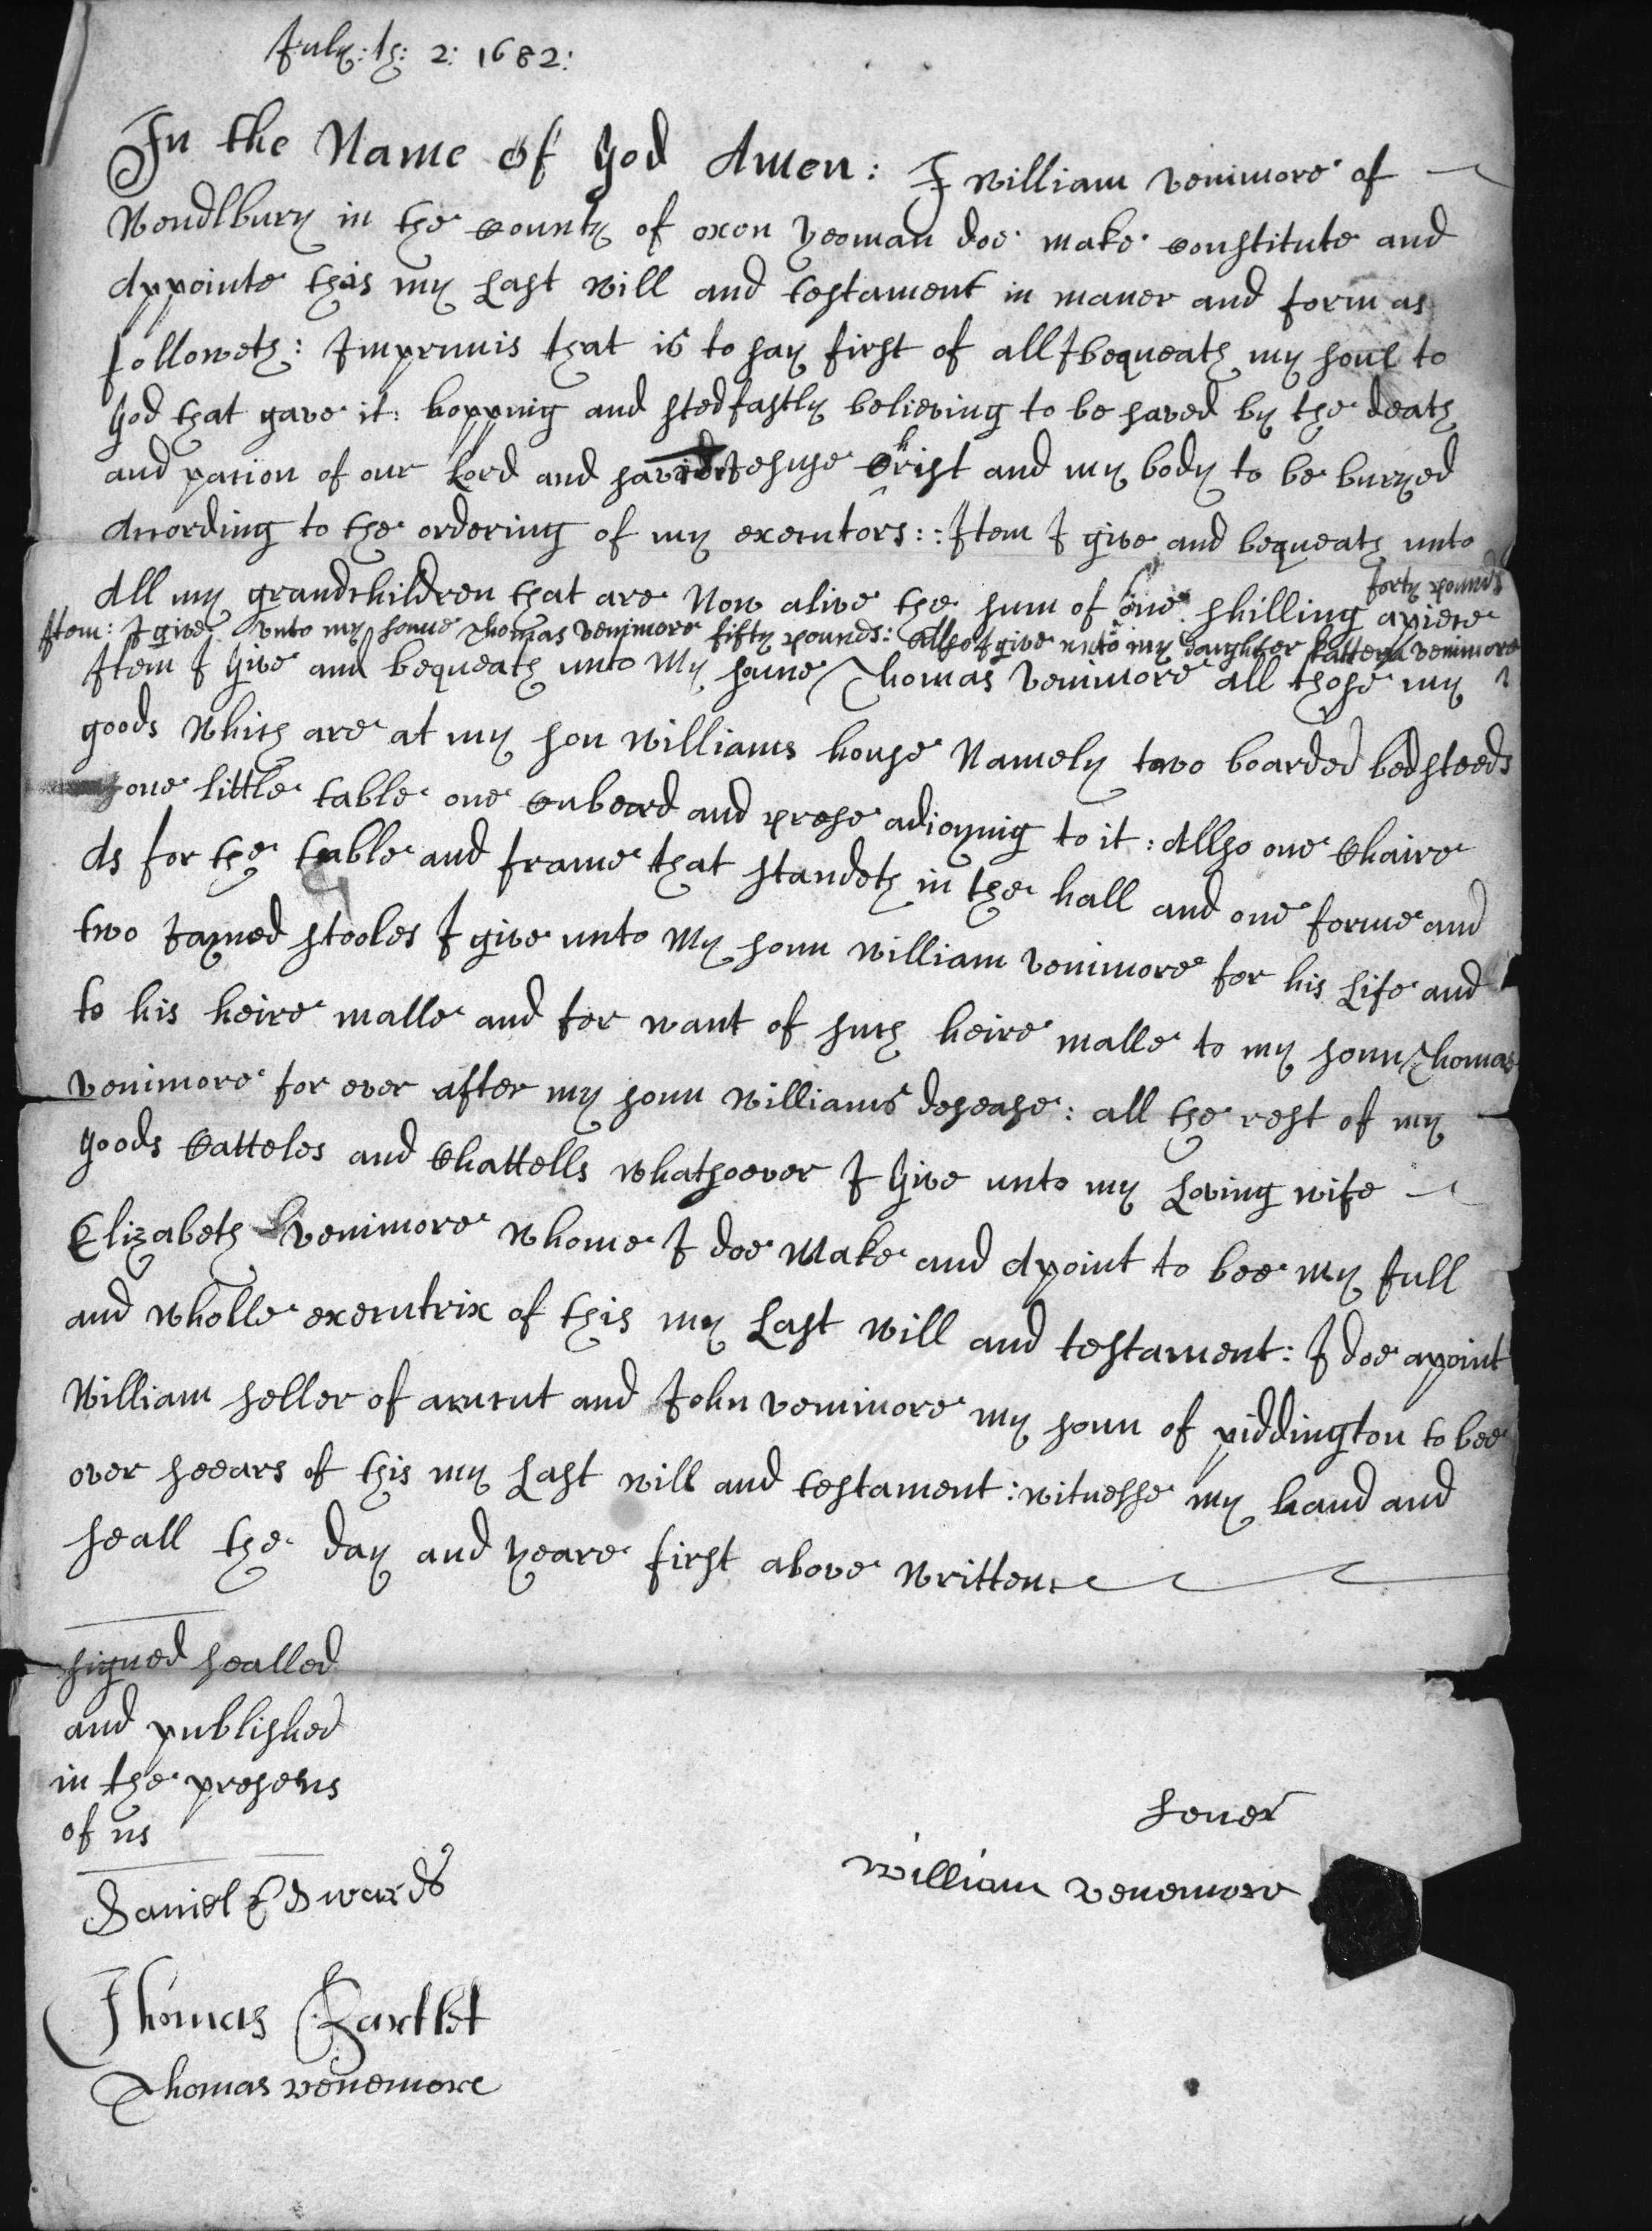 July: th: 2: 1682:
In the Name of God Amen: I william venimore of
Wendlbury in the County of oxon yeoman doe make constitute and
Appointe this my Last will and testament in maner and form as
followeth: Imprimis that is to say first of all I bequeath my soul to
God that gave it: hopping and stedfastly believing to be saved by the death
and pacion of our Lord and Jesuse Christ and my body to be buryed
According to the ordering of my executors:: Item I give and bequeath unto
All my grandchildren that are Now alive the sum of one shilling apiece
forty pounds
Item: I give unto my sonne Thomas venimore fifty pounds: Allso I give unto my daughter venimore
Item I Give and bequeath unto My sonne Thomas venimore all those my
goods Which are at my son williams house Namely two boarded bedsteeds
one little table one Cubeard and prese adioynig to it: Allso one Chaire
As for the table and frame that standeth in the hall and one forme and
two Jayned stooles I give unto My sonn william venimore for his Life and
to his heire malle and for want of such heire malle to my sonn Thomas
venimore for ever after my sonn williams desease: all the rest of my
Goods Catteles and Chattells whatsoever I Give unto my Loving wife
Elizabeth venimore Whome I doe Make and Apoint to bee my full
and Wholle executrix of this my Last will and testament: I doe apoint
William seller of and John venimore my sonn of piddington to bee
over seears of this my Last will and testament: witnesse my hand and
seall the day and yeare first above Written:
signed sealled
and published
in the presens
of us
Daniel Edwards
Thomas Bartlet
Thomas venemore
sener
william venemore